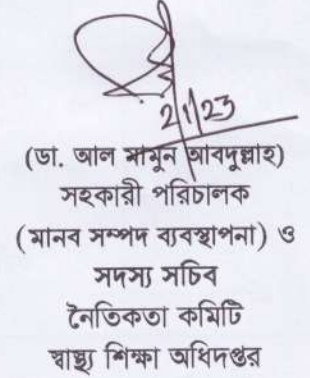 2/1/23
(ডা. আল মামুন আবদুল্লাহ)
সহকারী পরিচালক
(মানব সম্পদ ব্যবস্থাপনা) ও
সদস্য সচিব
নৈতিকতা কমিটি
স্বাস্থ্য শিক্ষা অধিদপ্তর